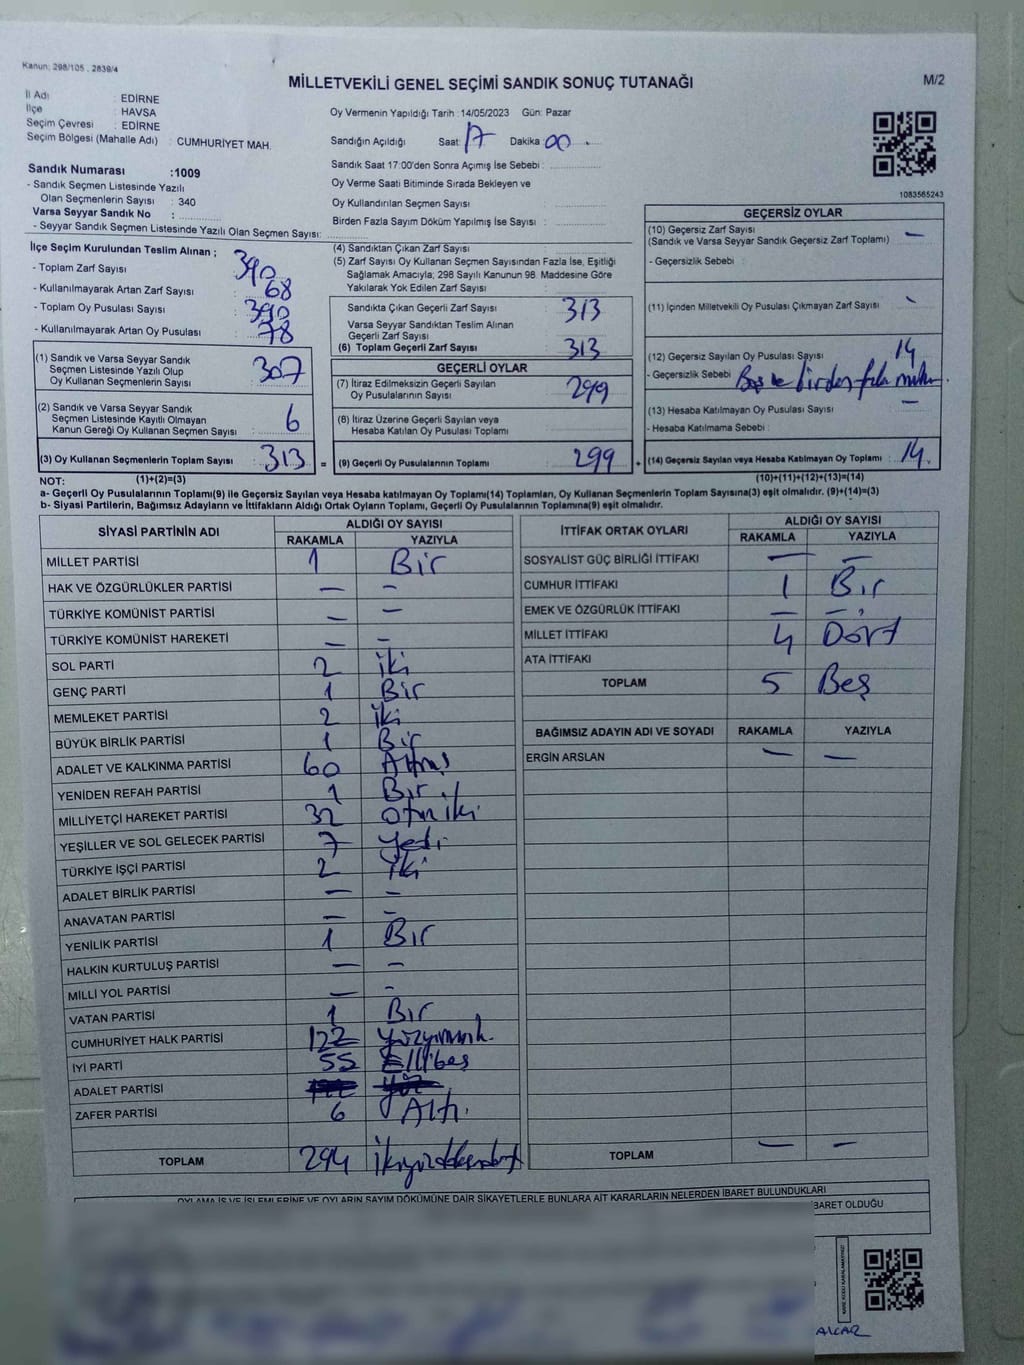 Kanun: 298/105 . 2839/4
MİLLETVEKİLİ GENEL SEÇİMİ SANDIK SONUÇ TUTANAĞI
M/2
İl Adı : EDİRNE
İlçe : HAVSA
Seçim Çevresi : EDİRNE
Seçim Bölgesi (Mahalle Adı) : CUMHURİYET MAH.
Sandık Numarası :1009
- Sandık Seçmen Listesinde Yazılı
Olan Seçmenlerin Sayısı : 340
Varsa Seyyar Sandık No :
- Seyyar Sandık Seçmen Listesinde Yazılı Olan Seçmen Sayısı:
Oy Vermenin Yapıldığı Tarih : 14/05/2023 Gün: Pazar
Sandığın Açıldığı Saat: 17 Dakika : 00
Sandık Saat 17:00'den Sonra Açımış İse Sebebi :
Oy Verme Saati Bitiminde Sırada Bekleyen ve
Oy Kullandırılan Seçmen Sayısı :
Birden Fazla Sayım Döküm Yapılmış İse Sayısı :
1083565243
İlçe Seçim Kurulundan Teslim Alınan ;
- Toplam Zarf Sayısı : 390
- Kullanılmayarak Artan Zarf Sayısı : 68
- Toplam Oy Pusulası Sayısı : 390
- Kullanılmayarak Artan Oy Pusulası : 78
(1) Sandık ve Varsa Seyyar Sandık
Seçmen Listesinde Yazılı Olup
Oy Kullanan Seçmenlerin Sayısı : 307
(2) Sandık ve Varsa Seyyar Sandık
Seçmen Listesinde Kayıtlı Olmayan
Kanun Gereği Oy Kullanan Seçmen Sayısı : 6
(3) Oy Kullanan Seçmenlerin Toplam Sayısı : 313 =
(4) Sandıktan Çıkan Zarf Sayısı :
(5) Zarf Sayısı Oy Kullanan Seçmen Sayısından Fazla İse, Eşitliği
Sağlamak Amacıyla; 298 Sayılı Kanunun 98. Maddesine Göre
Yakılarak Yok Edilen Zarf Sayısı :
Sandıkta Çıkan Geçerli Zarf Sayısı : 313
Varsa Seyyar Sandıktan Teslim Alınan
Geçerli Zarf Sayısı :
(6) Toplam Geçerli Zarf Sayısı : 313
GEÇERLİ OYLAR
(7) İtiraz Edilmeksizin Geçerli Sayılan
Oy Pusulalarının Sayısı : 299
(8) İtiraz Üzerine Geçerli Sayılan veya
Hesaba Katılan Oy Pusulası Toplamı :
(9) Geçerli Oy Pusulalarının Toplamı : 299 +
GEÇERSİZ OYLAR
(10) Geçersiz Zarf Sayısı : —
(Sandık ve Varsa Seyyar Sandık Geçersiz Zarf Toplamı)
- Geçersizlik Sebebi :
(11) İçinden Milletvekili Oy Pusulası Çıkmayan Zarf Sayısı : -
(12) Geçersiz Sayılan Oy Pusulası Sayısı : 14
- Geçersizlik Sebebi : Boş ve birden fazla mühür.
(13) Hesaba Katılmayan Oy Pusulası Sayısı : —
- Hesaba Katılmama Sebebi :
(14) Geçersiz Sayılan veya Hesaba Katılmayan Oy Toplamı : 14.
NOT: (1)+(2)=(3)
(10)+(11)+(12)+(13)=(14)
a- Geçerli Oy Pusulalarının Toplamı(9) ile Geçersiz Sayılan veya Hesaba katılmayan Oy Toplamı(14) Toplamları, Oy Kullanan Seçmenlerin Toplam Sayısına(3) eşit olmalıdır. (9)+(14)=(3)
b- Siyasi Partilerin, Bağımsız Adayların ve İttifakların Aldığı Ortak Oyların Toplamı, Geçerli Oy Pusulalarının Toplamına(9) eşit olmalıdır.
SİYASİ PARTİNİN ADI ALDIĞI OY SAYISI
RAKAMLA YAZIYLA
MİLLET PARTİSİ 1 Bir
HAK VE ÖZGÜRLÜKLER PARTİSİ — —
TÜRKİYE KOMÜNİST PARTİSİ — —
TÜRKİYE KOMÜNİST HAREKETİ — —
SOL PARTİ 2 iki
GENÇ PARTİ 1 Bir
MEMLEKET PARTİSİ 2 iki
BÜYÜK BİRLİK PARTİSİ 1 Bir
ADALET VE KALKINMA PARTİSİ 60 Altmış
YENİDEN REFAH PARTİSİ 1 Bir
MİLLİYETÇİ HAREKET PARTİSİ 32 otuz iki
YEŞİLLER VE SOL GELECEK PARTİSİ 7 yedi
TÜRKİYE İŞÇİ PARTİSİ 2 iki
ADALET BİRLİK PARTİSİ — —
ANAVATAN PARTİSİ — —
YENİLİK PARTİSİ 1 Bir
HALKIN KURTULUŞ PARTİSİ — —
MİLLİ YOL PARTİSİ — —
VATAN PARTİSİ 1 Bir
CUMHURİYET HALK PARTİSİ 122 yüzyirmiiki
İYİ PARTİ 55 Ellibeş
ADALET PARTİSİ
ZAFER PARTİSİ 6 Altı.
TOPLAM 294 ikiyüzdoksandört
İTTİFAK ORTAK OYLARI ALDIĞI OY SAYISI
RAKAMLA YAZIYLA
SOSYALİST GÜÇ BİRLİĞİ İTTİFAKI — —
CUMHUR İTTİFAKI 1 Bir
EMEK VE ÖZGÜRLÜK İTTİFAKI — —
MİLLET İTTİFAKI 4 Dört
ATA İTTİFAKI
TOPLAM 5 Beş
BAĞIMSIZ ADAYIN ADI VE SOYADI RAKAMLA YAZIYLA
ERGİN ARSLAN — —
TOPLAM — —
OYLAMA İŞ VE İŞLEMLERİNE VE OYLARIN SAYIM DÖKÜMÜNE DAİR ŞİKAYETLERLE BUNLARA AİT KARARLARIN NELERDEN İBARET BULUNDUKLARI
BARET OLDUĞU